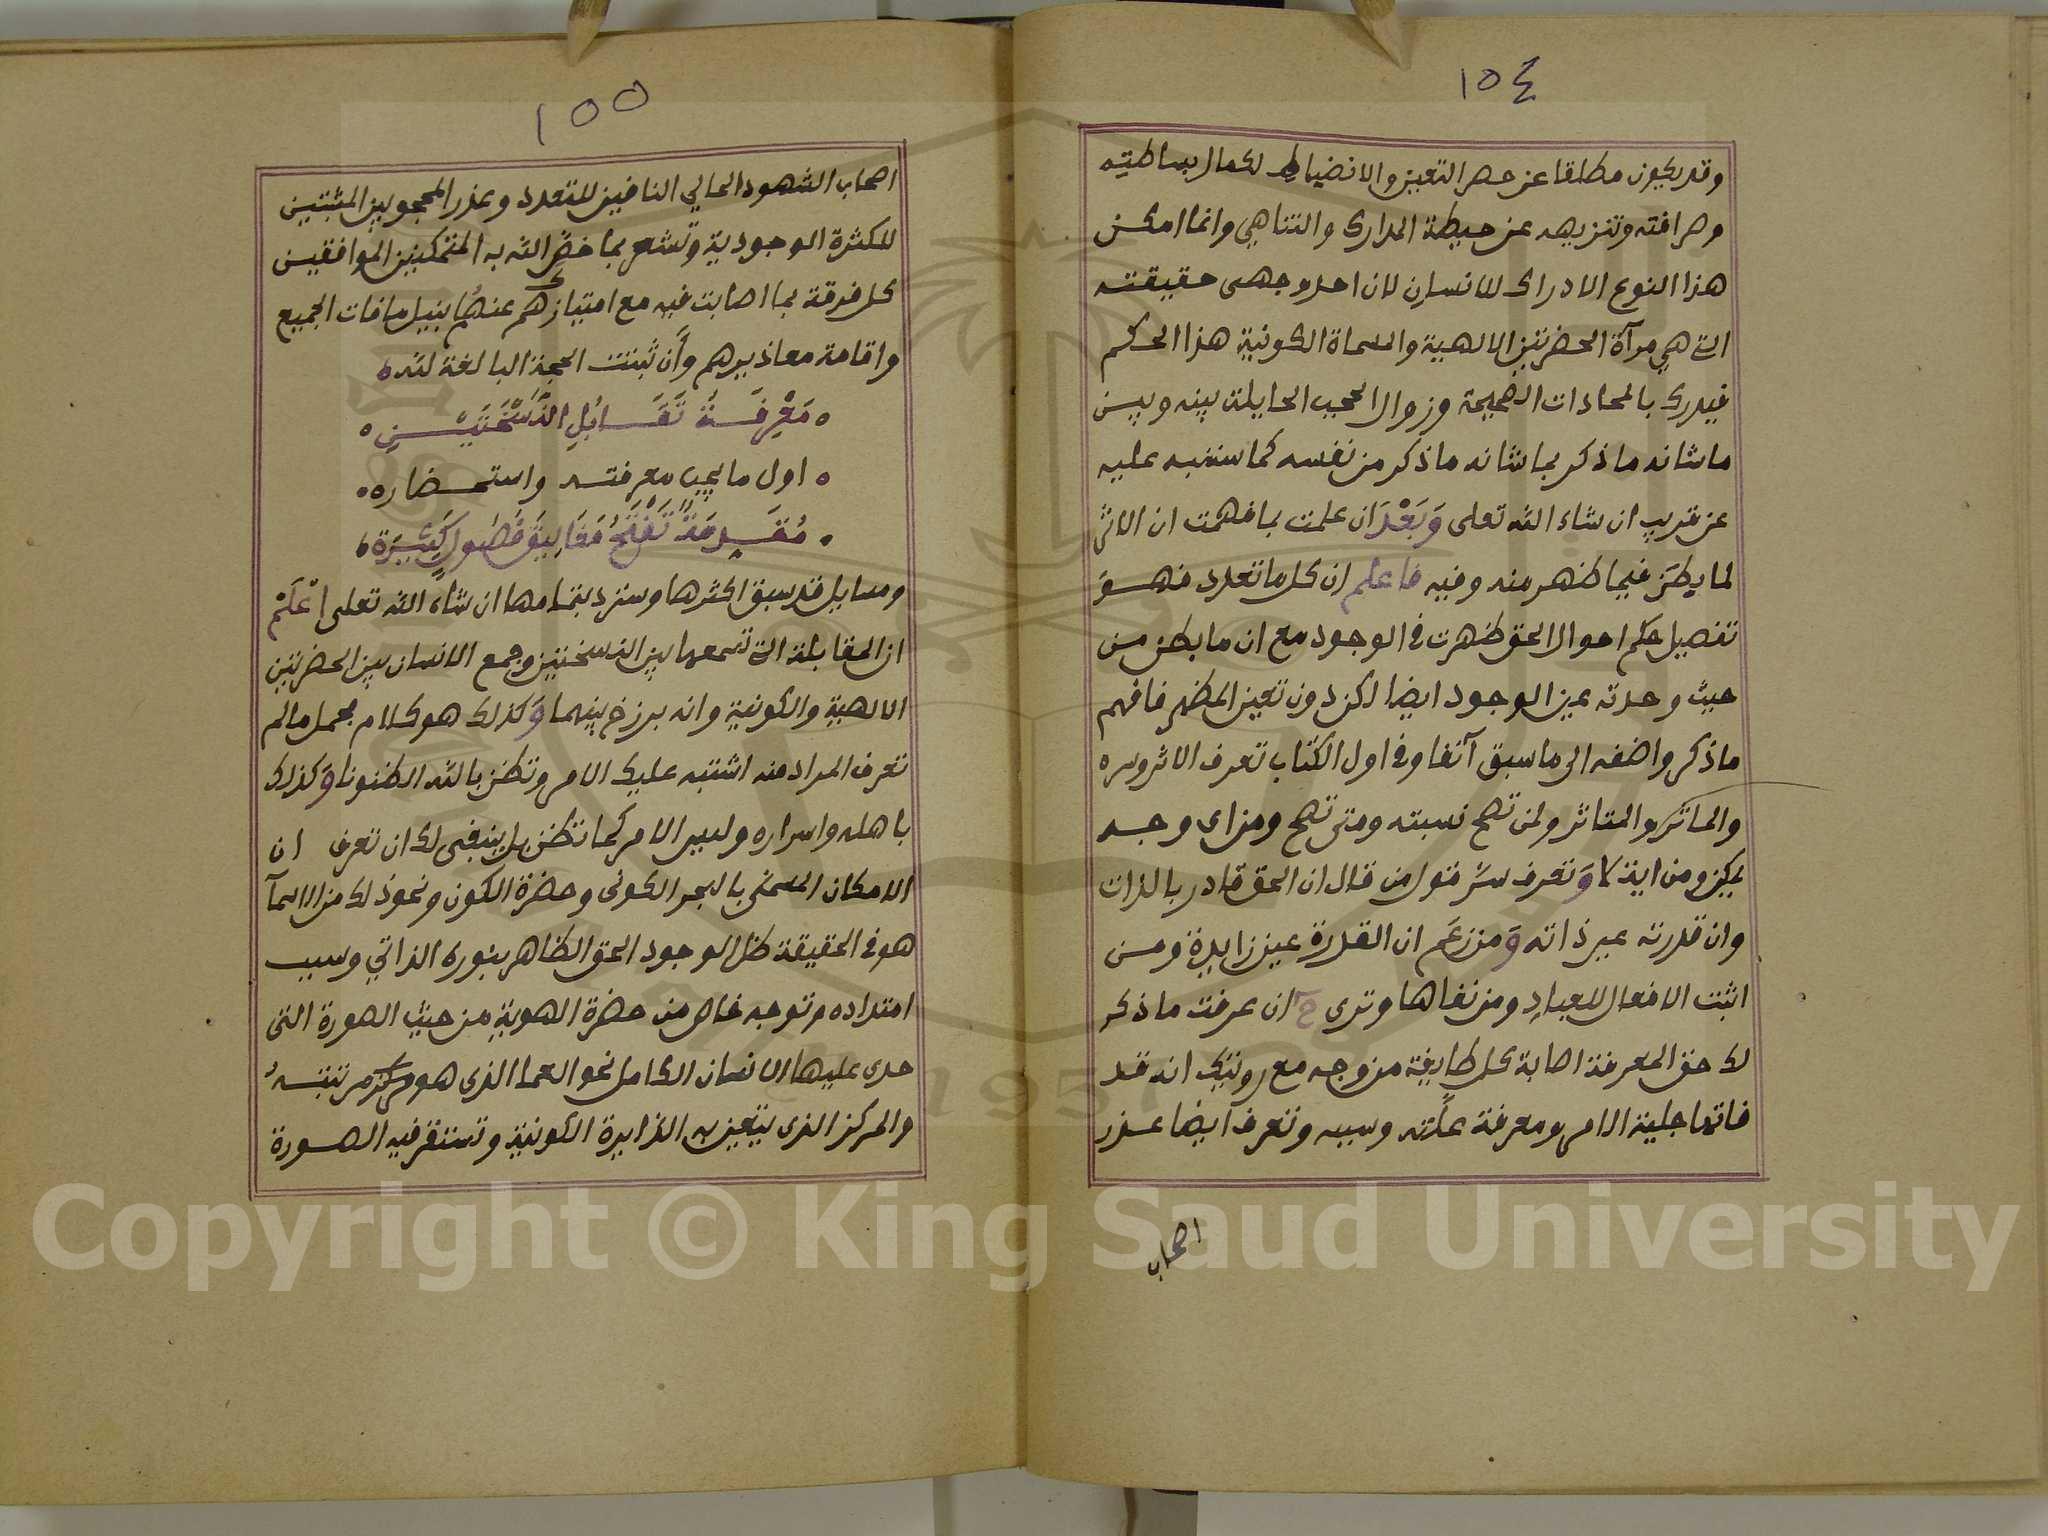 ١٥٤
وقد يكون مطلقا عن حصر التعين والانضباط لكمال بساطيته
وصرافته وتنزيهه عن حيطة المدارك والتناهي وانما امكن
هذا النوع الادراك للانسان لان احد وجهى حقيقته
التي هي مرآة الحضرتين الالهية والمسماة الكونية هذا الحكم
فيدرك بالمحاذات الصحيحة وزوال الحجب الحايلة بينه وبين
ما شانه ما ذكر بما شانه ما ذكر من نفسه كما سننبه عليه
عن قريب ان شاء الله تعلى وَبَعْدَ ان علمت بما فهمت ان الاثر
لما يطن فيما ظهر منه وفيه فاعلم ان كل ما تعدد فهو
تفصيل حكم احوال الحق ظهرت في الوجود مع ان ما بطن من
حيث وحدته عين الوجود ايضا لكن دون تعين المظهر فافهم
ما ذكر واضفه الى ما سبق آنفا وفي اول الكتاب تعرف الاثر وسره
والماثر والمتاثر ولمن تصح نسبته ومتى تصح ومن اي وجه
يمكن ومن اية لا وَتعرف سرّ قول من قال ان الحق قادر بالذات
وان قدرته عين ذاته وَمن زعم ان القدرة عين زايدة ومن
اثبت الافعال للعباد ومن نفاها وترى ح ان عرفت ما ذكر
لك حق المعرفة اصابة كل طايفة من وجه مع رويتك انه قد
فاتها جلية الامر ومعرفة علته وسببه وتعرف ايضا عذر
اصحاب
١٥٥
اصحاب الشهود الحالي النافين للتعدد وعذر المحجوبين المثبتين
للكثرة الوجودية وتشعر بما خصّ الله به المتمكنين الموافقين
كل فرقة بما اصابت فيه مع امتيازهم عنهم بنيل ما فات الجميع
واقامة معاذيرهم وأن ثبتت الحجة البالغة لله
مَعْرِفَةُ تَقَابُلِ النُّسْخَتَيْنِ
اول ما يجب معرفته واستحضاره
مُقَدِّمَةٌ تَفْتَحُ مَغَالِيقَ فُصُولٍ كَثِيرَةٍ
ومسايل قد سبق اكثرها وسترد بتمامها ان شاء الله تعلى اعْلَمْ
ان المقابلة التي تسمعها بين النسختين وجمع الانسان بين الحضرتين
الالهية والكونية وانه برزخ بينهما وَكذلك هو كلام مجمل ما لم
تعرف المراد منه اشتبه عليك الامر وتظن بالله الظنونا وَكذلك
باهله واسراره وليس الامر كما تظن بل ينبغى لك ان تعرف ان
الامكان المسمى بالبحر الكونى وحضرة الكون ونحو ذلك من الاسمآ
هو في الحقيقة ظل الوجود الحق الظاهر بنوره الذاتي وسبب
امتداده توجه خاص من حضرة الهوية من حيث الصورة التى
حدى عليها الانسان الكامل نحو العما الذى هو مركز مرتبته
والمركز الذى يتعين به الدايرة الكونية وتستقر فيه الصورة
Copyright © King Saud University
1957